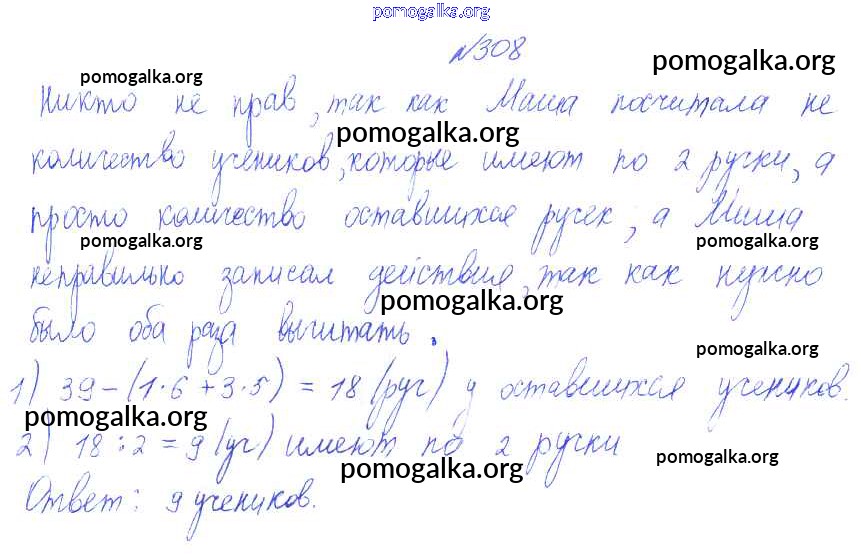 pomogalka.org
№308
pomogalka.org
pomogalka.org
Никто не прав, так как Маша посчитала не
pomogalka.org
количество учеников, которые имеют по 2 ручки, а
просто количество оставшихся ручек, а Миша
pomogalka.org pomogalka.org
неправильно записал действия, так как нужно
pomogalka.org
было оба раза вычитать.
pomogalka.org
1) 39-(1·6+3·5)=18 (руч) у оставшихся учеников.
pomogalka.org
2) 18:2=9 (уч) имеют по 2 ручки
pomogalka.org pomogalka.org
Ответ: 9 учеников.